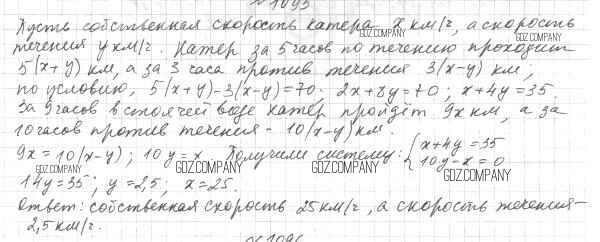 № 1095
Пусть собственная скорость катера x км/г, а скорость
GDZ.COMPANY
течения y км/г. Катер за 5 часов по течению проходит
GDZ.COMPANY
5(x+y) км, а за 3 часа против течения 3(x-y) км,
по условию, 5(x+y)-3(x-y)=70. 2x+8y=70; x+4y=35.
GDZ.COMPANY
За 9 часов в стоячей воде катер пройдёт 9x км, а за
10 часов против течения - 10(x-y) км.
9x=10(x-y); 10y=x. Получили систему: { x+4y=35
10y-x=0
GDZ.COMPANY GDZ.COMPANY
14y=35; y=2,5; x=25.
GDZ.COMPANY GDZ.COMPANY
Ответ: собственная скорость 25 км/г, а скорость течения-
2,5 км/г.
№ 1096